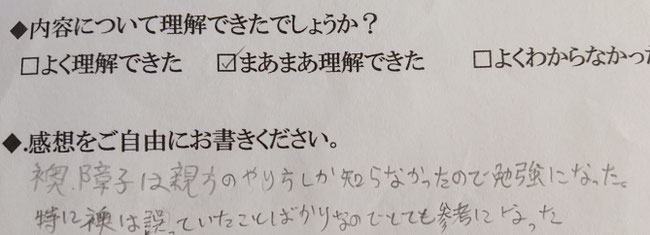 ◆内容について理解できたでしょうか？
□よく理解できた ☑まあまあ理解できた □よくわからなかっ
◆.感想をご自由にお書きください。
襖.障子は親方のやり方しか知らなかったので勉強になった。
特に襖は誤っていたことばかりなのでとても参考になった